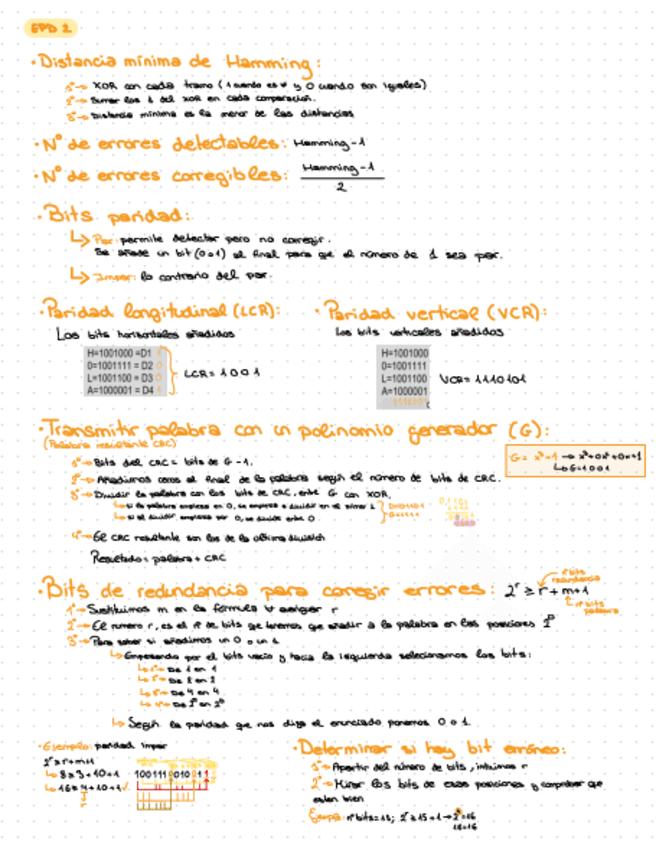 EPD 2
· Distancia mínima de Hamming:
1º→ XOR con cada tramo (1 cuando es ≠ y 0 cuando son iguales)
2º→ Sumar los 1 del XOR en cada comparación.
3º→ Distancia mínima es la menor de las distancias
· Nº de errores detectables: Hamming-1
· Nº de errores corregibles: Hamming-1
2
· Bits paridad:
↳ Par: permite detectar pero no corregir.
Se añade un bit (0 o 1) al final para que el número de 1 sea par.
↳ Impar: lo contrario del par.
· Paridad longitudinal (LCR): · Paridad vertical (VCR):
Los bits horizontales añadidos Los bits verticales añadidos
H=1001000 =D1 H=1001000
0=1001111 = D2 0=1001111
L=1001100 = D3 L=1001100
A=1000001 = D4 A=1000001
LCR= 1001 VCR= 1110101
· Transmitir palabra con un polinomio generador (G):
(Palabra resultante CRC)
G= x³+1 → x³+0x²+0x+1
↳ G=1001
1º→ Bits del CRC = bits de G-1.
2º→ Añadimos ceros al final de la palabra según el número de bits de CRC.
3º→ Dividir la palabra con los bits de CRC, entre G con XOR.
↳ si la palabra empieza en 0, se empieza a dividir en el primer 1
↳ si al dividir empieza por 0, se divide entre 0
4º→ El CRC resultante son los de la última división
Resultado= palabra + CRC
· Bits de redundancia para corregir errores: 2ʳ ≥ r+m+1
nº bits redundancia
nº bits palabra
1º→ Sustituimos m en la fórmula y r
2º→ El numero r, es el nº de bits que tenemos que añadir a la palabra en las posiciones 2ⁿ
3º→ Para saber si añadimos un 0 o un 1
↳ Empezando por el bits vacío y hacia la izquierda seleccionamos los bits:
↳ 1º→ De 1 en 1
↳ 2º→ De 2 en 2
↳ De 4 en 4
↳ De 2ⁿ en 2ⁿ
↳ Según la paridad que nos diga el enunciado ponemos 0 o 1.
· Ejemplo: paridad impar
2ʳ≥r+m+1
↳ 8≥3+10+1
↳ 16≥4+10+1 ✓
100111 010 1
· Determinar si hay bit erróneo:
1º→ Apartir del número de bits, intuimos r
2º→ Mirar los bits de esas posiciones y comprobar que
estén bien
nº bits=15; 2ʳ≥15+1→2⁴=16
16=16